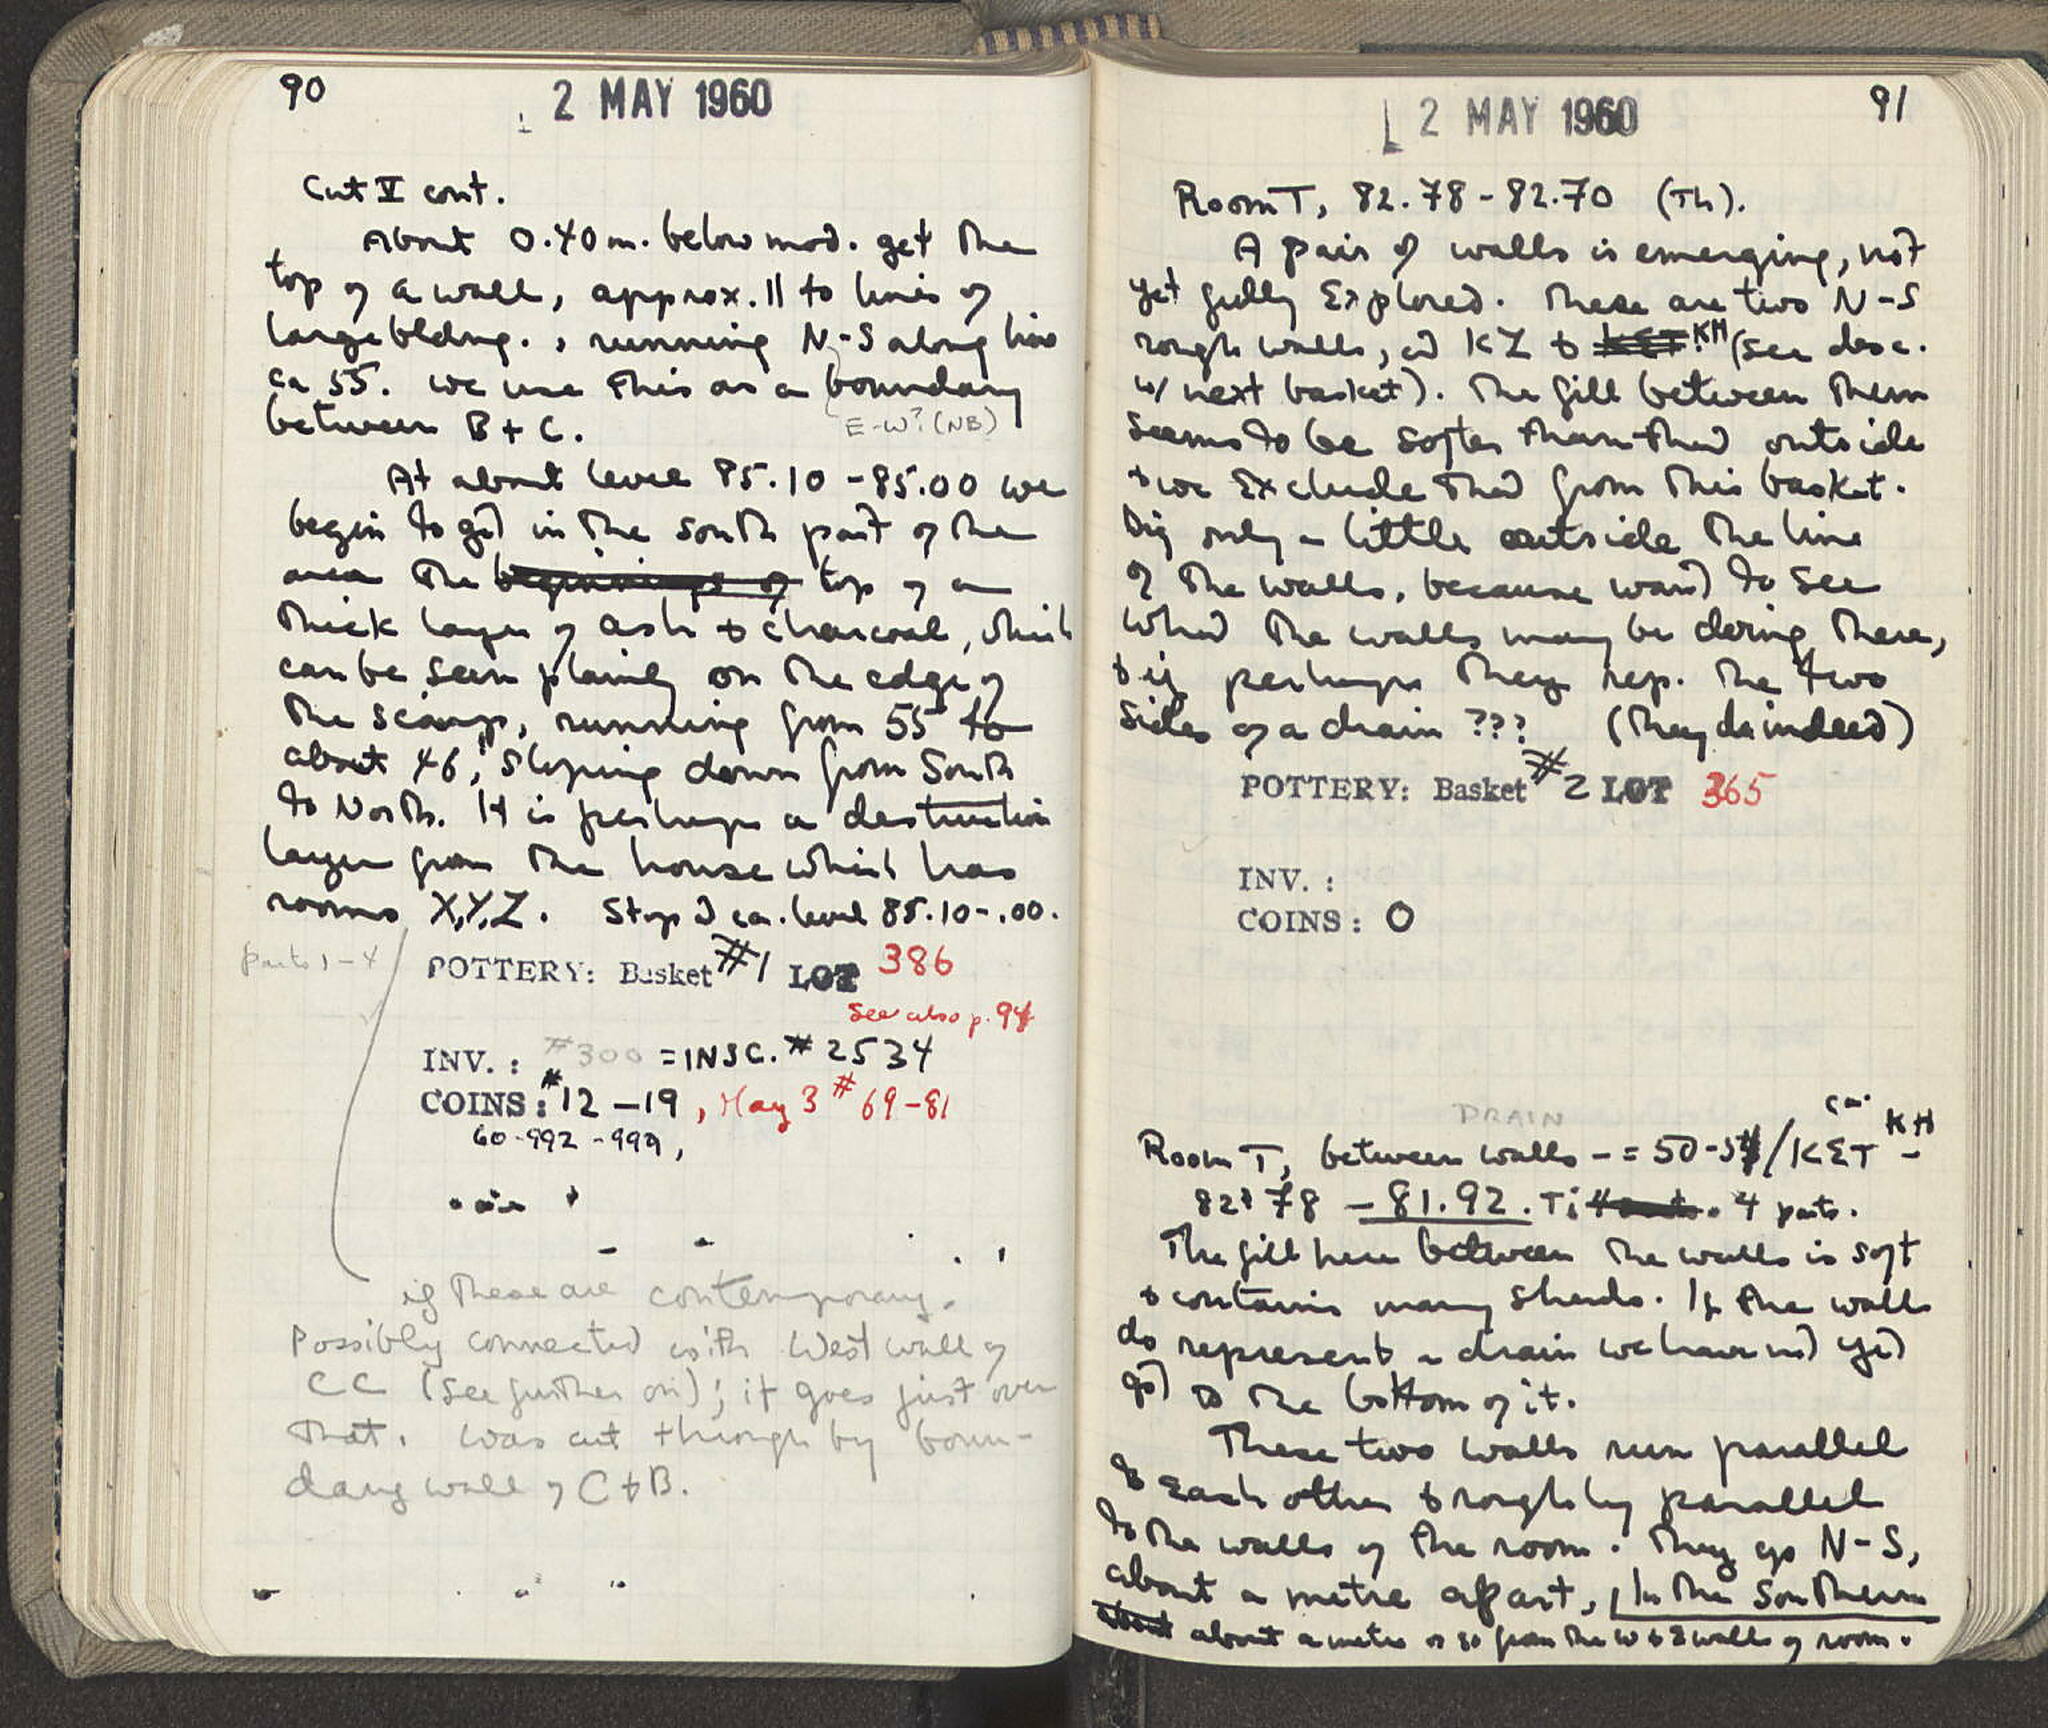 90
2 MAY 1960
Cut V cont.
About 0.40 m. below mod. get the
top of a wall, approx. || to lines of
large bldng., running N-S along line
ca 55. We use this as a boundary
E-W? (NB)
between B + C.
At about level 85.10 - 85.00 we
begin to get in the south part of the
area the beginnings of top of a
thick layer of ash & charcoal, which
can be seen plainly on the edge of
the scarp, running from 55 to
about 46, sloping down from South
to North. It is perhaps a destruction
layer from the house which has
rooms X,Y,Z. Stop at ca. level 85.10-.00.
parts 1-4
POTTERY: Basket #1 LOT 386
See also p. 94
INV.: #300 = INSC. # 2534
COINS: #12-19, May 3 # 69-81
60-992-999,
if these are contemporary.
Possibly connected with West wall of
CC (see further on); it goes just over
that. Was cut through by boun-
dary wall of C & B.
2 MAY 1960
91
Room T, 82.78 - 82.70 (Th).
A pair of walls is emerging, not
yet fully explored. These are two N-S
rough walls, at KZ & KH (see desc.
w/ next basket). The fill between them
seems to be softer than that outside
& we exclude that from this basket.
Dig only a little outside the line
of the walls, because want to see
what the walls may be doing there,
& if perhaps they rep. the two
sides of a drain ??? (they do indeed)
POTTERY: Basket #2 LOT 365
INV.:
COINS: 0
DRAIN
ca. KH
Room T, between walls - = 50-54/KΣT -
82.78 - 81.92. Ti 4 parts.
The fill here between the walls is soft
& contains many sherds. If the walls
do represent a drain we have not yet
got to the bottom of it.
These two walls run parallel
to each other & roughly parallel
to the walls of the room. They go N-S,
about a metre apart, in the southern
about about a metre or so from the W & E walls of room.